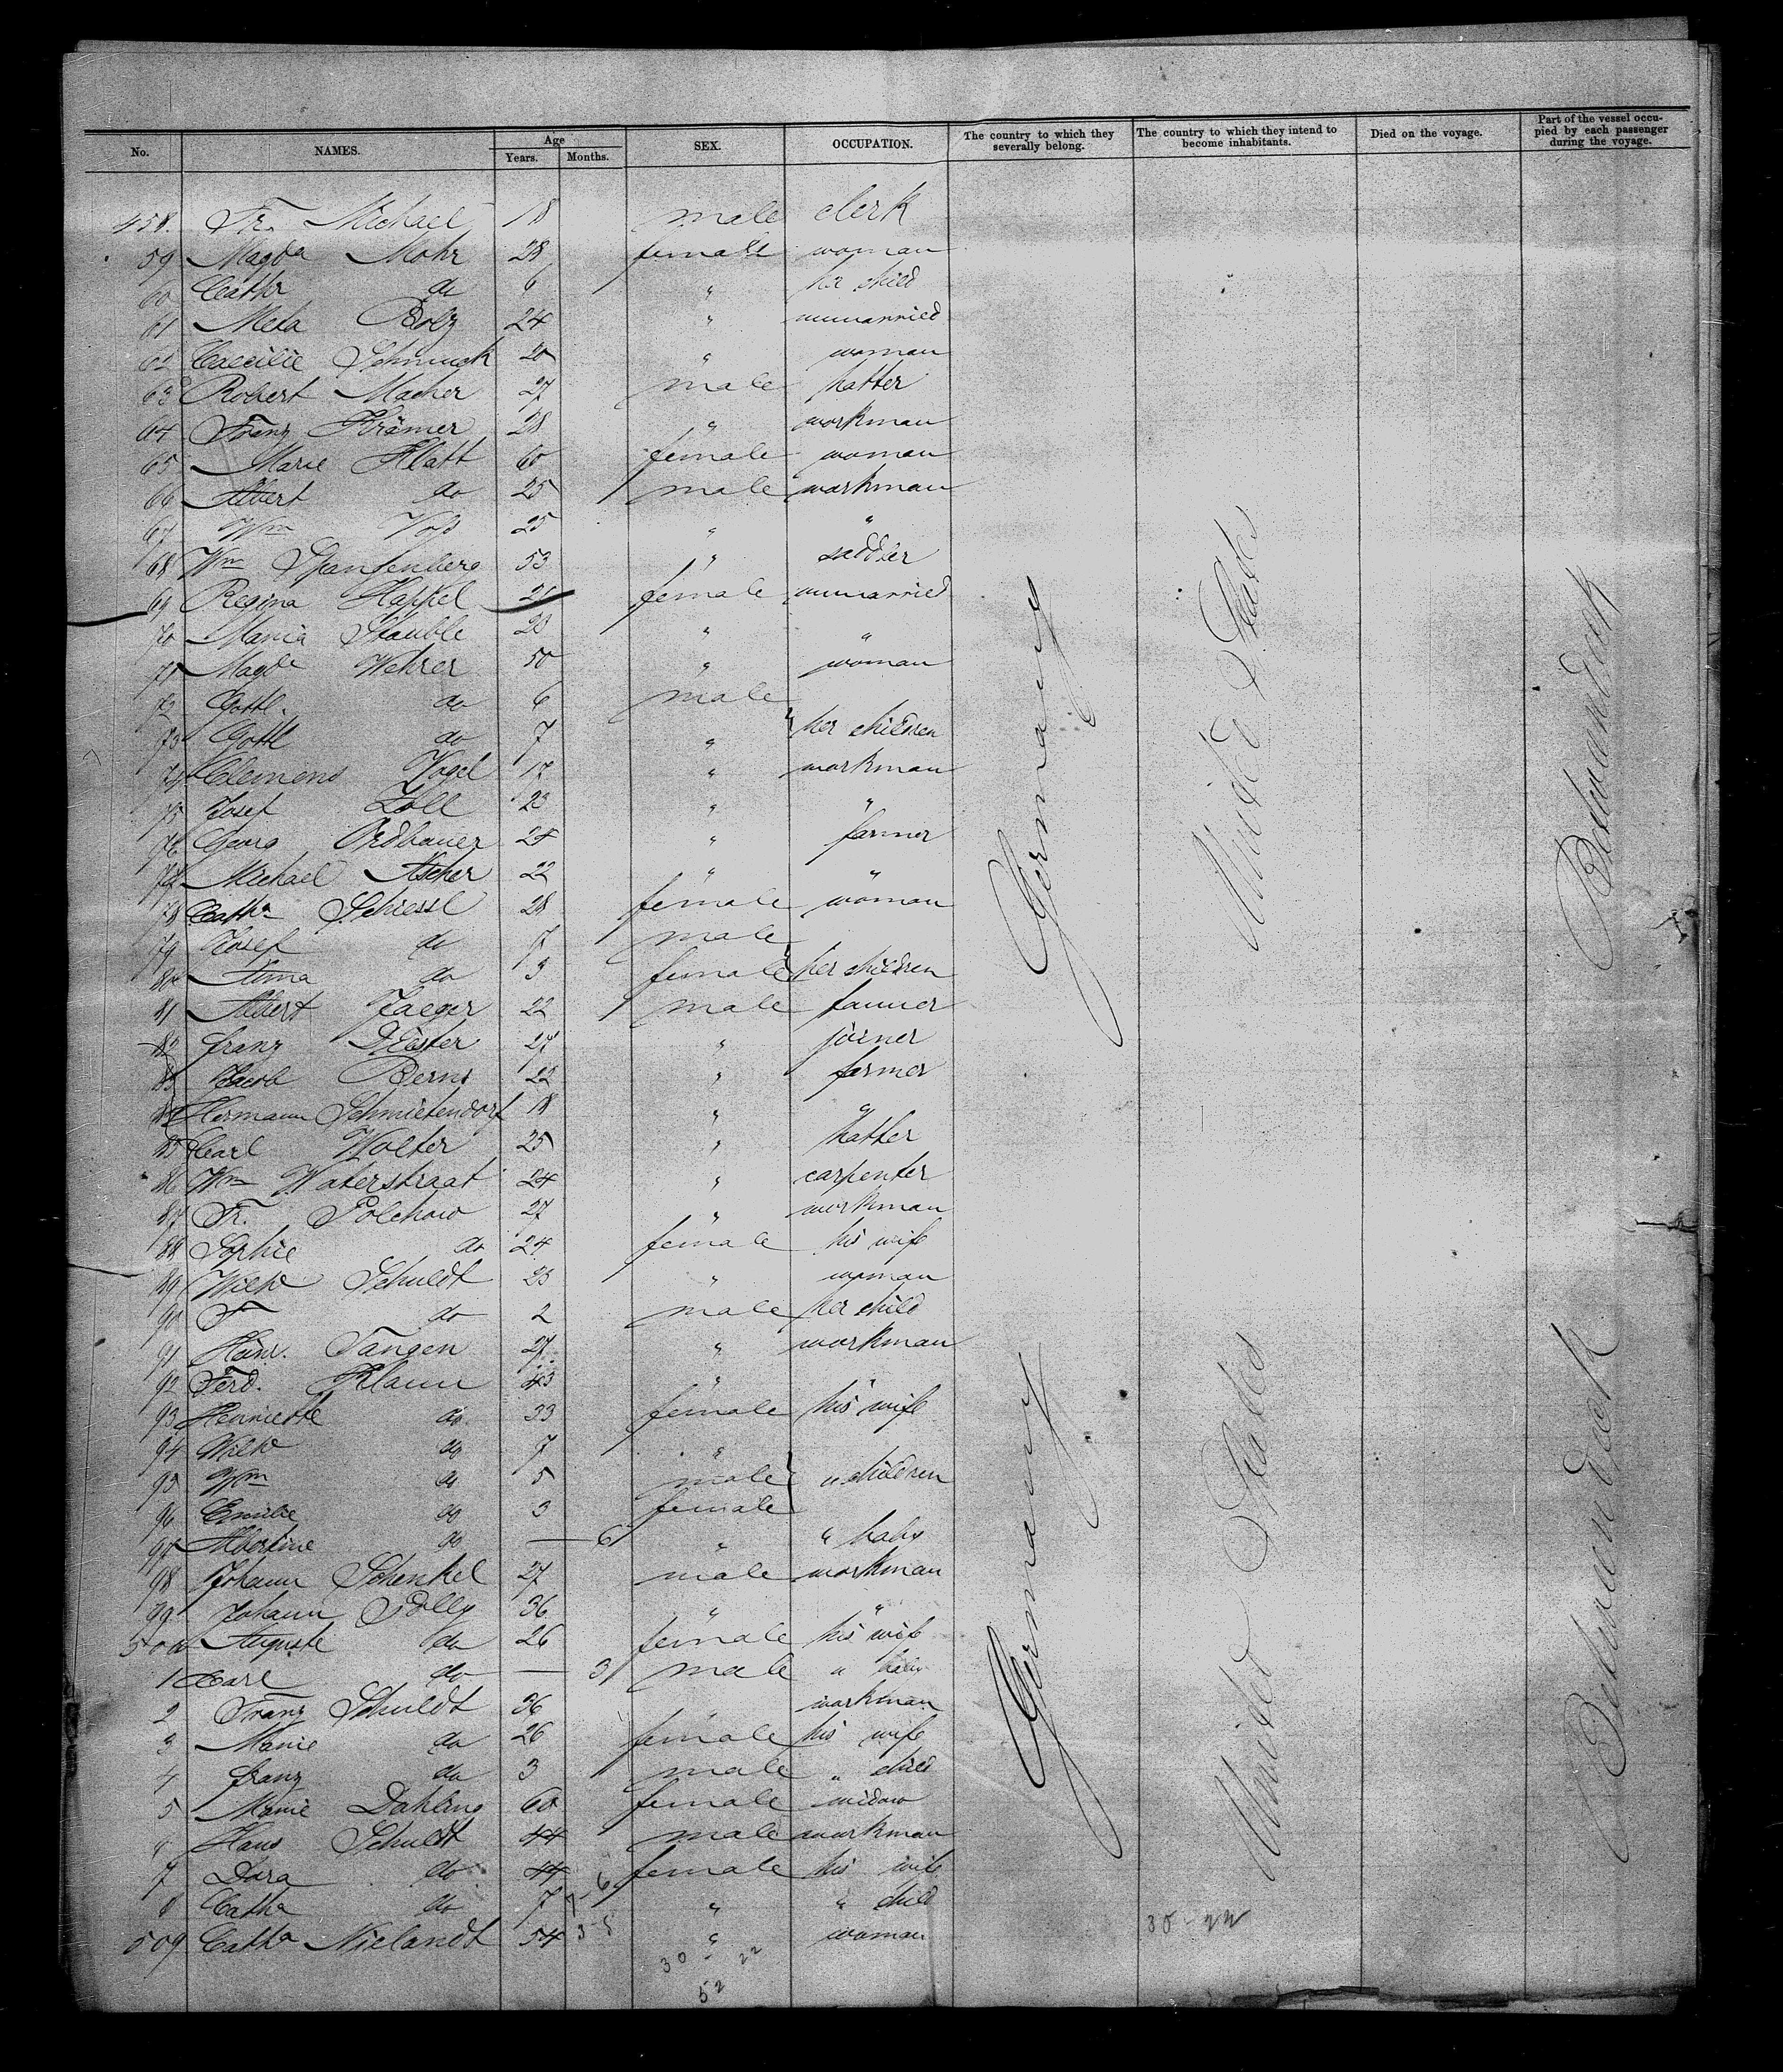 No. NAMES. Age Years. Months. SEX. OCCUPATION. The country to which they severally belong. The country to which they intend to become inhabitants. Died on the voyage. Part of the vessel occupied by each passenger during the voyage.
458. Fr. Michael 18 male clerk
59 Magda Mohr 28 female woman
60 Cathr do 6 " her child
61 Meta Bolz 24 " unmarried
62 Caecilie Schmuck 20 " woman
63 Robert Macher 27 male hatter
64 Franz Krämer 28 " workman
65 Marie Klatt 60 female woman
66 Albert do 25 male workman
67 Wm Voss 25 " "
68 Wm Spangenberg 53 " saddler
69 Regina Happel 21 female unmarried
70 Maria Stauble 20 " "
71 Magda Wehrer 50 " woman
72 Gottl. do 6 male
73 Gottl do 7 " her children
74 Clemens Vogel 17 " workman
75 Josef Zoll 23 " "
76 Georg Ordbauer 24 " farmer
77 Michael Ascher 22 " "
78 Catha Schiessl 28 female woman
79 Josef do 7 male
80 Anna do 3 female her children
81 Albert Jaeger 22 male farmer
82 Franz Diester 27 " joiner
83 Jacob Berns 22 " farmer
84 Hermann Schmietendorf 18 " "
85 Carl Wolter 25 " hatter
86 Wm Waterstraat 24 " carpenter
87 Fr. Polchow 27 " workman
88 Sophie do 24 female his wife
89 Wilh Schuldt 25 " woman
90 F do 2 male her child
91 Heinr. Tangen 27 " workman
92 Ferd. Klann 43 " "
93 Henriette do 33 female his wife
94 Wilh do 7 "
95 Wm do 5 male " children
96 Emilie do 3 female
97 Albertine do — 6 " " baby
98 Johann Schenkel 27 male workman
99 Johann Polly 36 " "
500 Auguste do 26 female his wife
1 Carl do — 3 male " baby
2 Franz Schuldt 36 workman
3 Marie do 26 female his wife
4 Franz do 3 male " child
5 Marie Dahling 60 female widow
6 Hans Schuldt 44 male workman
7 Dora do 44 female his wife
8 Catha do 7 " " child
509 Catha Nielandt 54 " woman
30 - 22
52
30-22
Germany
United States
Between Deck
Germany
United States
Between Deck